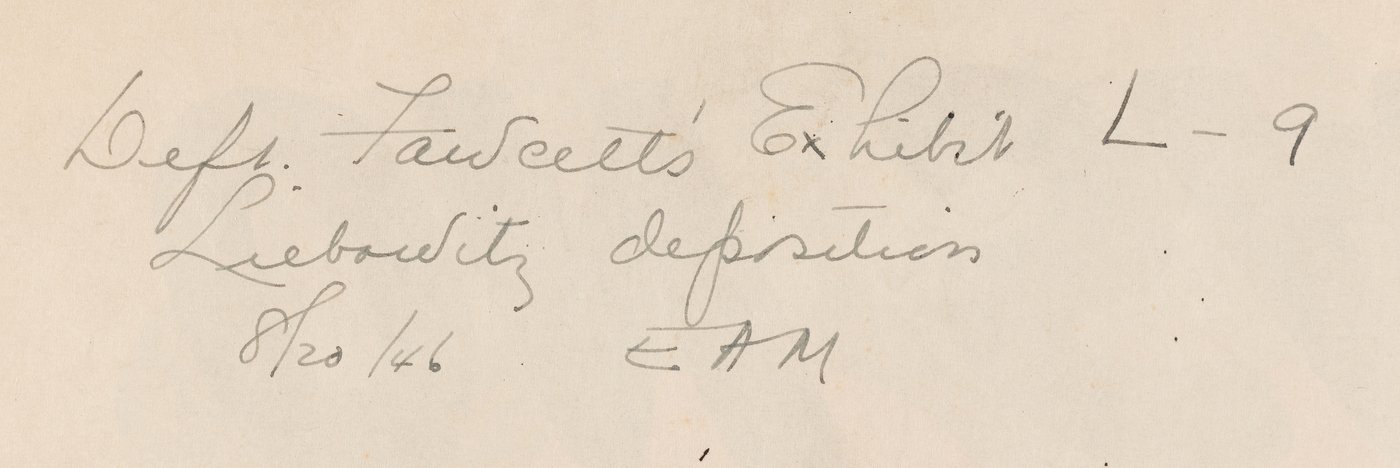 Deft. Fawcett's Exhibit L-9
Liebowitz deposition
8/20/46 EAM